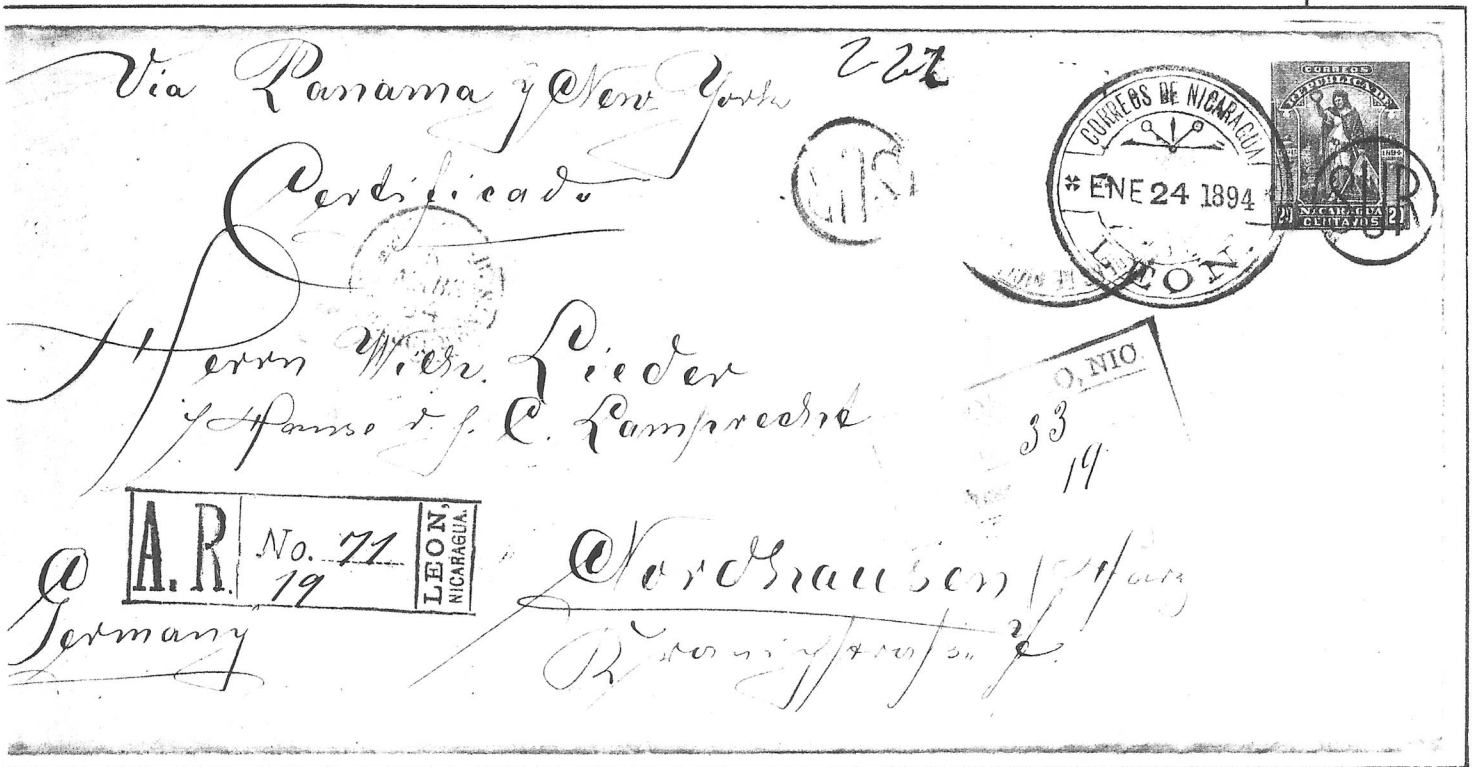 Via Panama y New York
227
Certificado
CORREOS DE NICARAGUA
* ENE 24 1894
LEON.
CORREOS
REPUBLICA DE
1894
NICARAGUA
20 CENTAVOS 20
Herrn Wilh. Lieder
C. Lamprecht
O, NIC.
33
19
A. R.
No. 71
19
LEON,
NICARAGUA.
Nordhausen / Harz
Germany